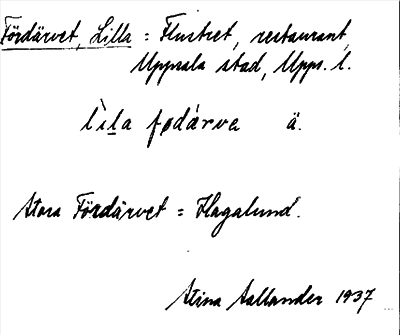 Fördärvet, Lilla = Flustret, restaurant,
Uppsala stad, Upps. l.
lìla fødárve ä.
Stora Fördärvet = Hagalund.
Stina Sallander 1937